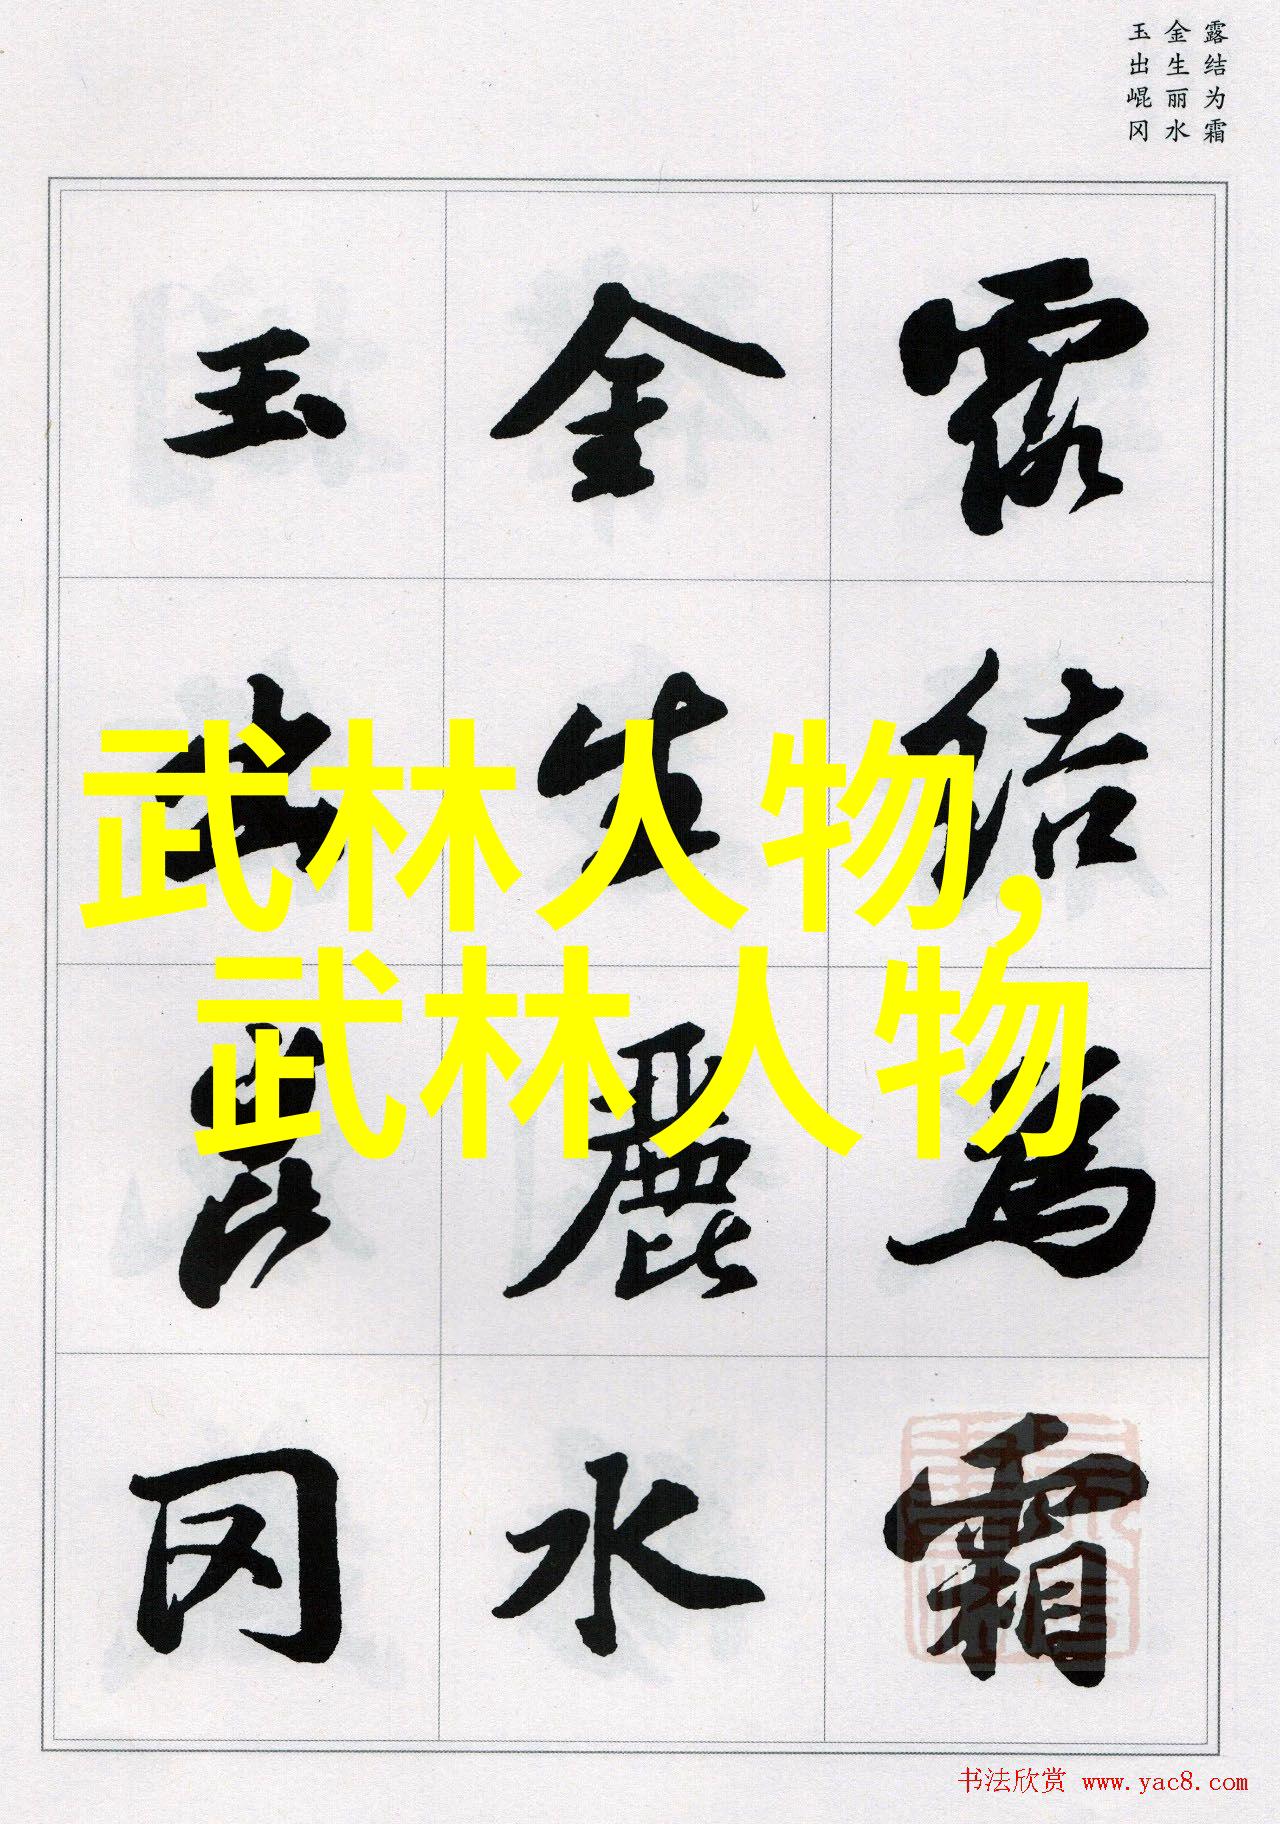 露结为霜
金生丽水
玉出崐冈
露結為霜
金生麗水
玉出崑冈
武林人物,
武林人物
书法欣赏 www.yac8.com